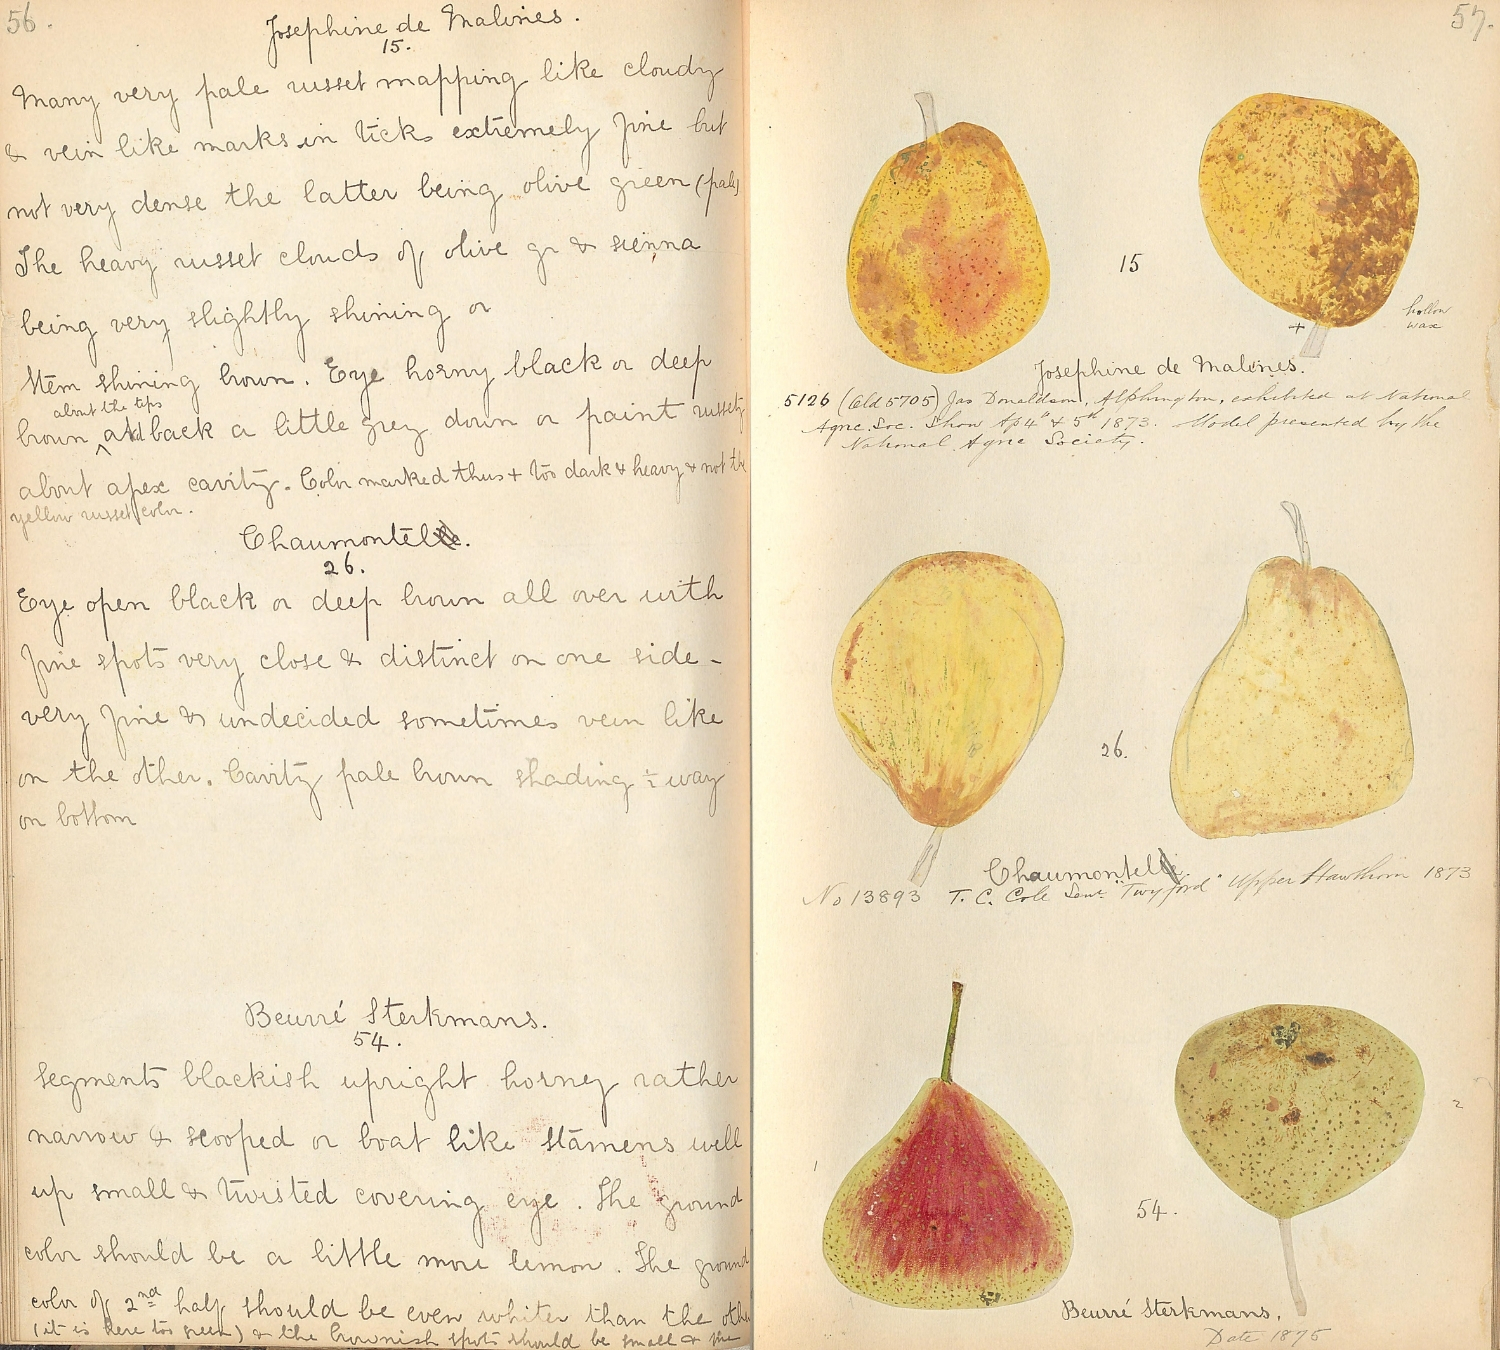 56.
Josephine de Malines.
15.
Many very pale russet mapping like cloudy
& vein like marks in ticks extremely fine but
not very dense the latter being olive green (pale)
The heavy russet clouds of olive gr & sienna
being very slightly shining or
Stem shining brown. Eye horny black or deep
about the tips
brown and back a little grey down or paint russety
about apex cavity. Color marked thus + too dark & heavy & not the
yellow russet color.
Chaumontel.
26.
Eye open black or deep brown all over with
fine spots very close & distinct on one side -
very fine & undecided sometimes vein like
on the other. Cavity pale brown shading ½ way
on bottom
Beurré Sterkmans.
54.
Segments blackish upright horney rather
narrow & scooped or boat like stamens well
up small & twisted covering eye. The ground
color should be a little more lemon. The ground
color of 2nd half should be even whiter than the other
(it is here too green) & the brownish spots should be small & fine
57.
15
+
hollow
wax
Josephine de Malines.
5126 (Old 5705) Jas Donaldson, Alphington, exhibited at National
Agric. Soc. Show Ap 4th & 5th 1873. Model presented by the
National Agric Society.
26.
Chaumontel
No 13893 T. C. Cole Senr "Twyford" Upper Hawthorn 1873
1
2
54.
Beurré Sterkmans.
Date 1875